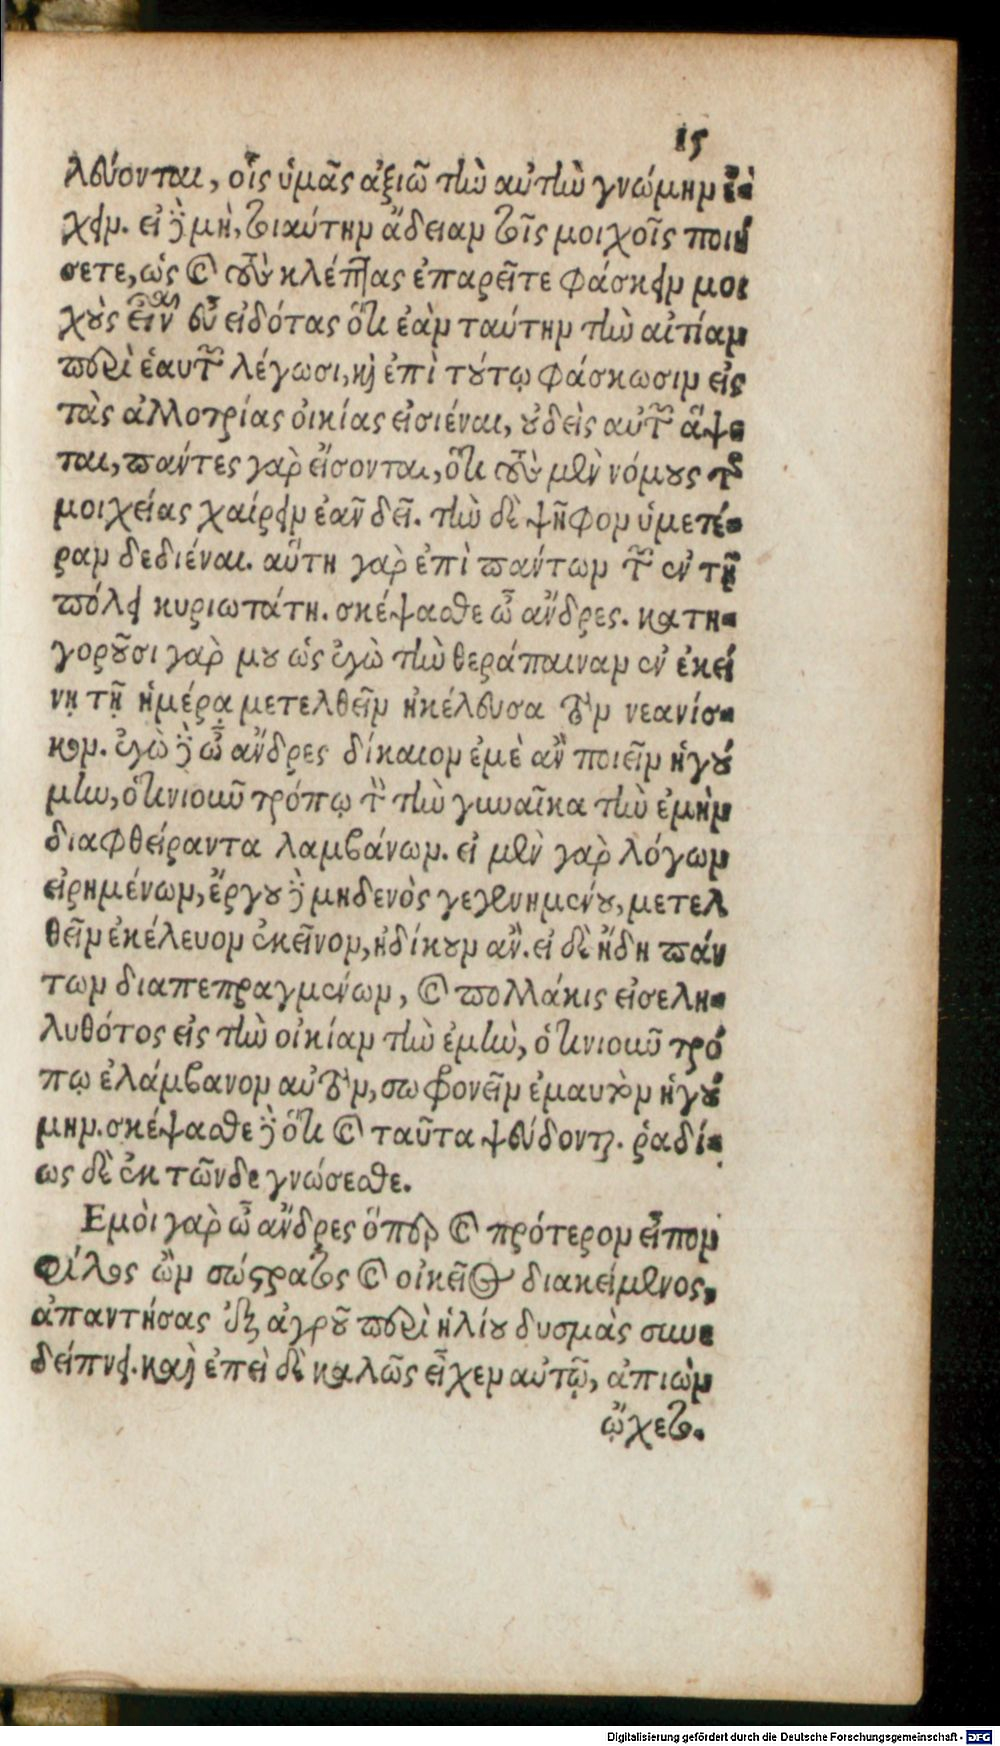 15
λεύονται, οἷς ὑμᾶς ἀξιῶ τὴν αὐτὴν γνώμην ἔ-
χειν. εἰ δὲ μὴ, τοιαύτην ἄδειαν τοῖς μοιχοῖς ποιή
σετε, ὡς καὶ τοὺς κλέπτας ἐπαρεῖτε φάσκειν μοι
χοὺς εἶναι εὖ εἰδότας ὅτι ἐὰν ταύτην τὴν αἰτίαν
περὶ ἑαυτῶν λέγωσι, καὶ ἐπὶ τούτῳ φάσκωσιν εἰς
τὰς ἀλλοτρίας οἰκίας εἰσιέναι, οὐδεὶς αὐτῶν ἅψε-
ται, πάντες γὰρ εἴσονται, ὅτι τοὺς μὲν νόμους τῆς
μοιχείας χαίρειν ἐᾶν δεῖ. τὴν δὲ ψῆφον ὑμετέ-
ραν δεδιέναι. αὕτη γὰρ ἐπὶ πάντων τῶν ἐν τῇ
πόλει κυριωτάτη. σκέψασθε ὦ ἄνδρες. κατη-
γοροῦσι γὰρ μου ὡς ἐγὼ τὴν θεράπαιναν ἐν ἐκεί
νῃ τῇ ἡμέρᾳ μετελθεῖν ἠκέλευσα τὸν νεανίσ-
κον. ἐγὼ δὲ ὦ ἄνδρες δίκαιον ἐμὲ ἂν ποιεῖν ἡγού
μην, ὁτινιοῦν τρόπῳ τὸν τὴν γυναῖκα τὴν ἐμὴν
διαφθείραντα λαμβάνων. εἰ μὲν γὰρ λόγων
εἰρημένων, ἔργου δὲ μηδενὸς γεγενημένου, μετελ
θεῖν ἐκέλευον ἐκεῖνον, ἠδίκουν ἄν. εἰ δὲ ἤδη πάν
των διαπεπραγμένων, καὶ πολλάκις εἰσελη-
λυθότος εἰς τὴν οἰκίαν τὴν ἐμὴν, ὁτινιοῦν τρό
πῳ ἐλάμβανον αὐτὸν, σωφρονεῖν ἐμαυτὸν ἡγού
μην. σκέψασθε δὲ ὅτι καὶ ταῦτα ψεύδονται. ῥαδί-
ως δὲ ἐκ τῶνδε γνώσεσθε.
Εμοὶ γὰρ ὦ ἄνδρες ὅπερ καὶ πρότερον εἶπον
φίλος ὢν σώςρατος καὶ οἰκεῖος διακείμενος,
ἀπαντήσας ἐξ ἀγροῦ περὶ ἡλίου δυσμὰς συνε
δείπνει. καὶ ἐπεὶ δὲ καλῶς εἶχεν αὐτῷ, ἀπιὼν
ᾤχετο.
Digitalisierung gefördert durch die Deutsche Forschungsgemeinschaft - DFG